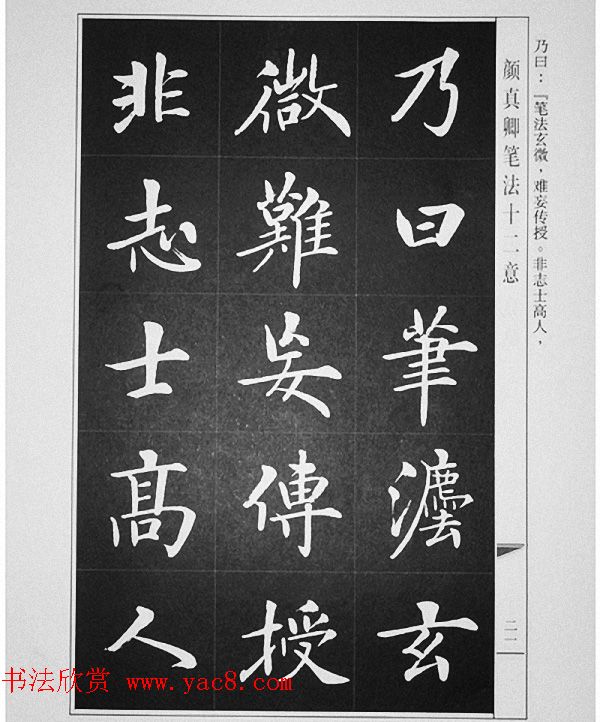 乃曰：『笔法玄微，难妄传授。非志士高人，
颜真卿笔法十二意
二一
乃曰筆灋玄
微難妄傳授
非志士高人
书法欣赏 www.yac8.com